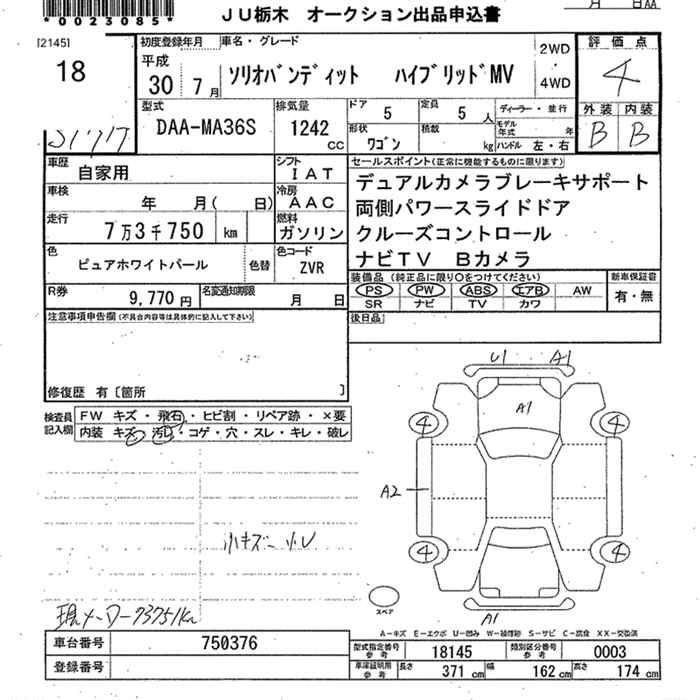 *0023085*
JU栃木 オークション出品申込書
月 日AA
[2145]
18
初度登録年月
平成
30 7月
車名・グレード
ソリオバンディット ハイブリッドMV
2WD
4WD
評価点
4
型式
DAA-MA36S
排気量
1242
CC
ドア
5
定員
5
人
ディーラー・並行
形状
ワゴン
積載
kg
モデル年式
年
ハンドル 左・右
外装 内装
B B
車歴
自家用
シフト
IAT
セールスポイント(正常に機能するものに限ります)
デュアルカメラブレーキサポート
両側パワースライドドア
クルーズコントロール
ナビTV Bカメラ
車検
年 月( 日)
冷房
AAC
走行
7万3千750 km
燃料
ガソリン
色
ピュアホワイトパール
色替
色コード
ZVR
装備品(純正品に限り○をつけてください)
新車保証書
PS PW ABS エアB AW
SR ナビ TV カワ
有・無
R券
9,770円
名変通知期限
月 日
後日品
注意事項申告欄(不具合内容等は具体的に記入して下さい)
修復歴 有〔箇所 〕
検査員記入欄
FW キズ・飛石・ヒビ割・リペア跡・×要
内装 キズ・汚レ・コゲ・穴・スレ・キレ・破レ
U1 A1
A1
4 4
A2
4 4
A1
小キズ 小U
スペア
現メーター73751km
A-キズ E-エクボ U-凹み W-補修跡 S-サビ C-腐食 XX-交換済
車台番号
750376
登録番号
型式指定番号
参考
18145
類別区分番号
参考
0003
車庫証明用
参考
長さ
371 cm
幅
162 cm
高さ
174 cm